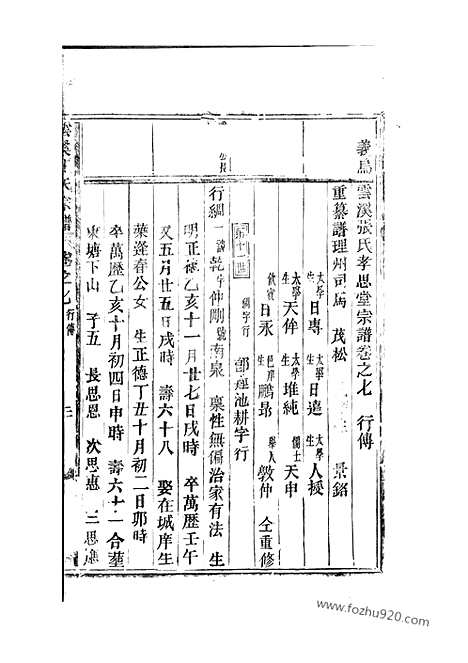 義烏雲溪張氏孝思堂宗譜卷之七 行傳
重纂譜理州司馬 茂松 景銘
太學生日專 太學生日達 太學生人授
太學生天侔 太學生堆純 儒士天申
飲賓日永 邑庠生鵬昂 舉人敦仲 仝重修
第十一世 綱字行 部蓮池耕字行
行綱一 諱乾字仲剛號南泉 稟性無偏治家有法 生
明正德乙亥十一月廿七日戌時 卒萬歷壬午
又五月廿五日戌時 壽六十八 娶在城庠生
葉逢春公女 生正德丁丑十月初二日卯時
卒萬歷乙亥十月初四日申時 壽六十一合葬
東塘下山 子五 長思恩 次思惠 三思
雲溪張氏宗譜 卷之七 行傳 三
www.fozhu920.com